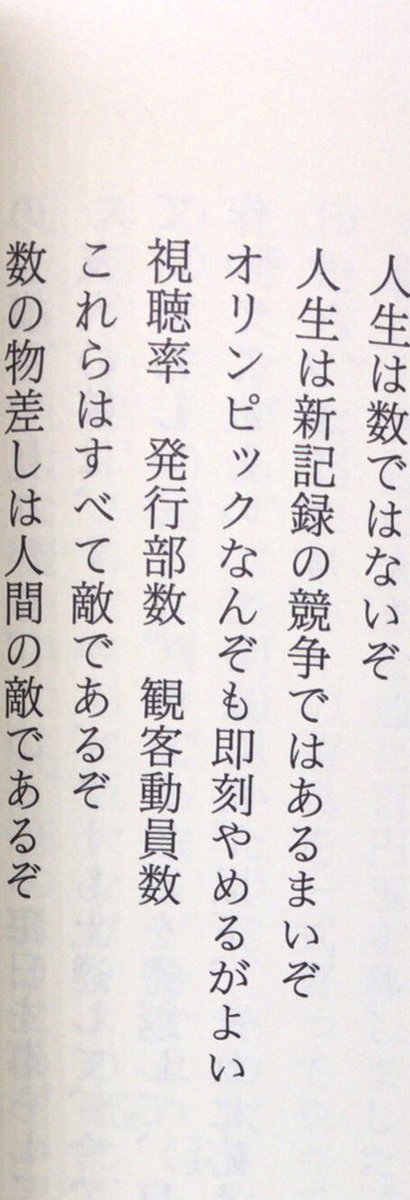 人生は数ではないぞ
人生は新記録の競争ではあるまいぞ
オリンピックなんぞも即刻やめるがよい
視聴率　発行部数　観客動員数
これらはすべて敵であるぞ
数の物差しは人間の敵であるぞ